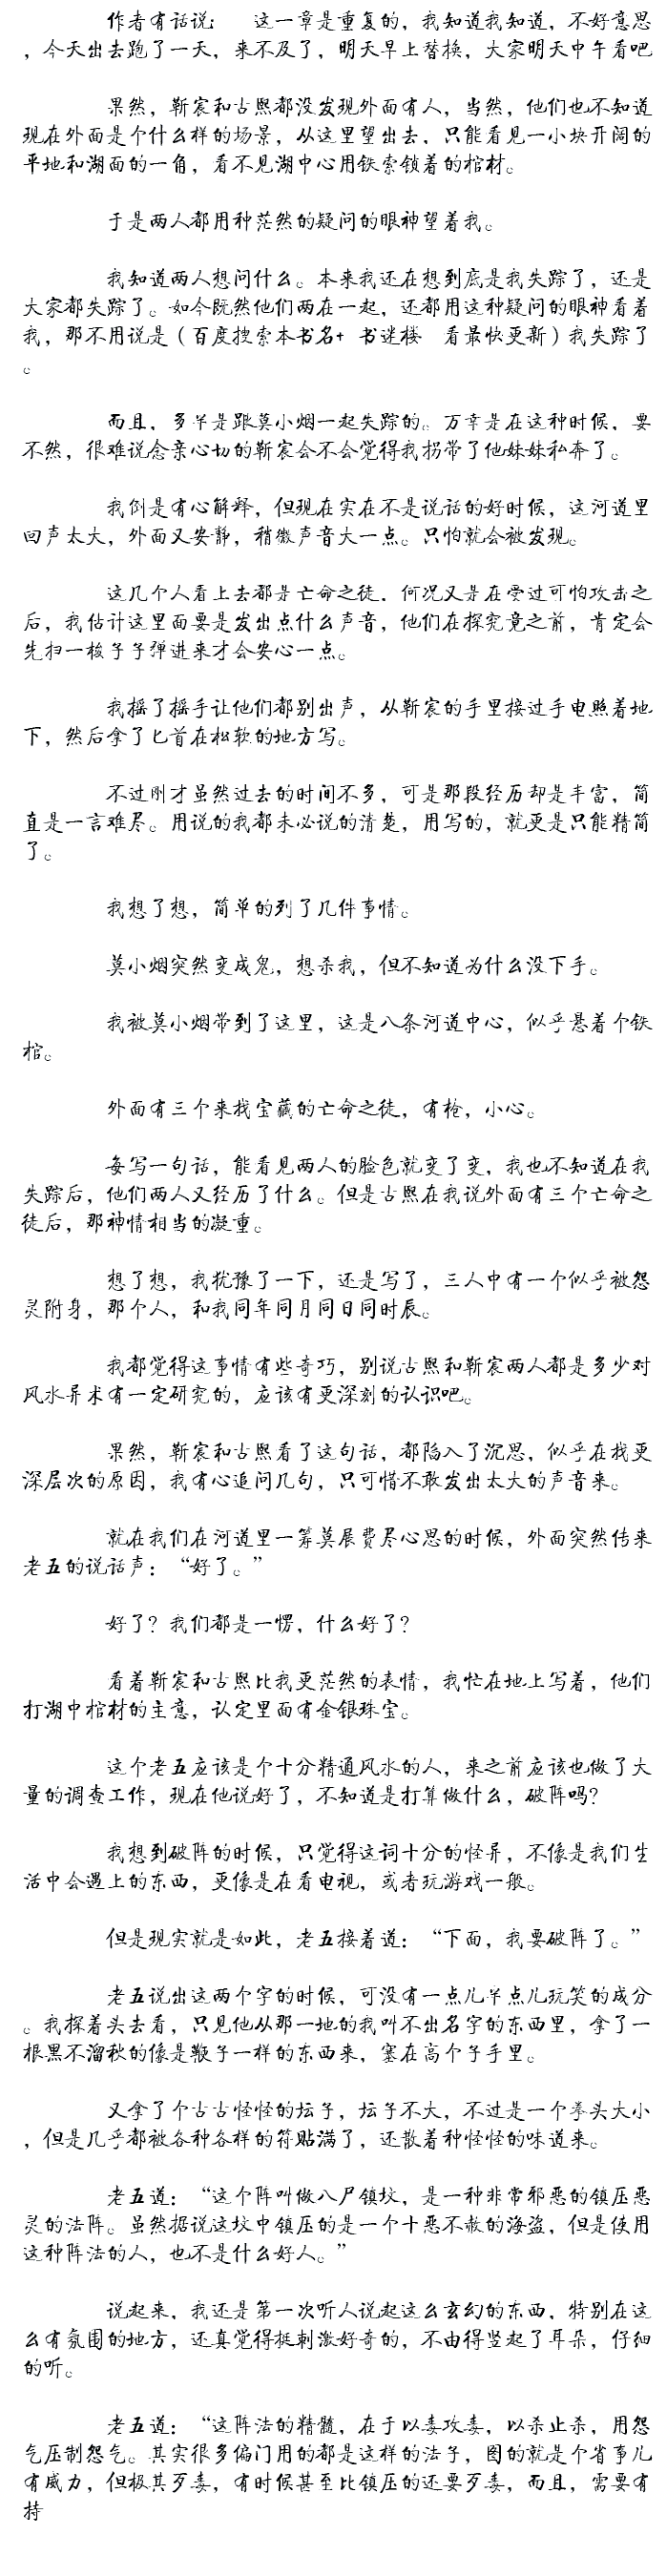 作者有话说： 这一章是重复的，我知道我知道，不好意思
，今天出去跑了一天，来不及了，明天早上替换，大家明天中午看吧
果然，靳宸和古熙都没发现外面有人，当然，他们也不知道
现在外面是个什么样的场景，从这里望出去，只能看见一小块开阔的
平地和湖面的一角，看不见湖中心用铁索锁着的棺材。
于是两人都用种茫然的疑问的眼神望着我。
我知道两人想问什么。本来我还在想到底是我失踪了，还是
大家都失踪了。如今既然他们两在一起，还都用这种疑问的眼神看着
我，那不用说是（百度搜索本书名+ 书迷楼 看最快更新）我失踪了
。
而且，多半是跟莫小烟一起失踪的。万幸是在这种时候，要
不然，很难说念亲心切的靳宸会不会觉得我拐带了他妹妹私奔了。
我倒是有心解释，但现在实在不是说话的好时候，这河道里
回声太大，外面又安静，稍微声音大一点。只怕就会被发现。
这几个人看上去都是亡命之徒，何况又是在受过可怕攻击之
后，我估计这里面要是发出点什么声音，他们在探究竟之前，肯定会
先扫一梭子子弹进来才会安心一点。
我摇了摇手让他们都别出声，从靳宸的手里接过手电照着地
下，然后拿了匕首在松软的地方写。
不过刚才虽然过去的时间不多，可是那段经历却是丰富，简
直是一言难尽。用说的我都未必说的清楚，用写的，就更是只能精简
了。
我想了想，简单的列了几件事情。
莫小烟突然变成鬼，想杀我，但不知道为什么没下手。
我被莫小烟带到了这里，这是八条河道中心，似乎悬着个铁
棺。
外面有三个来找宝藏的亡命之徒，有枪，小心。
每写一句话，能看见两人的脸色就变了变，我也不知道在我
失踪后，他们两人又经历了什么。但是古熙在我说外面有三个亡命之
徒后，那神情相当的凝重。
想了想，我犹豫了一下，还是写了，三人中有一个似乎被怨
灵附身，那个人，和我同年同月同日同时辰。
我都觉得这事情有些奇巧，别说古熙和靳宸两人都是多少对
风水异术有一定研究的，应该有更深刻的认识吧。
果然，靳宸和古熙看了这句话，都陷入了沉思，似乎在找更
深层次的原因，我有心追问几句，只可惜不敢发出太大的声音来。
就在我们在河道里一筹莫展费尽心思的时候，外面突然传来
老五的说话声：“好了。”
好了？我们都是一愣，什么好了？
看着靳宸和古熙比我更茫然的表情，我忙在地上写着，他们
打湖中棺材的主意，认定里面有金银珠宝。
这个老五应该是个十分精通风水的人，来之前应该也做了大
量的调查工作，现在他说好了，不知道是打算做什么，破阵吗？
我想到破阵的时候，只觉得这词十分的怪异，不像是我们生
活中会遇上的东西，更像是在看电视，或者玩游戏一般。
但是现实就是如此，老五接着道：“下面，我要破阵了。”
老五说出这两个字的时候，可没有一点儿半点儿玩笑的成分
。我探着头去看，只见他从那一地的我叫不出名字的东西里，拿了一
根黑不溜秋的像是鞭子一样的东西来，塞在高个子手里。
又拿了个古古怪怪的坛子，坛子不大，不过是一个拳头大小
，但是几乎都被各种各样的符贴满了，还散着种怪怪的味道来。
老五道：“这个阵叫做八尸镇坟，是一种非常邪恶的镇压恶
灵的法阵。虽然据说这坟中镇压的是一个十恶不赦的海盗，但是使用
这种阵法的人，也不是什么好人。”
说起来，我还是第一次听人说起这么玄幻的东西，特别在这
么有氛围的地方，还真觉得挺刺激好奇的，不由得竖起了耳朵，仔细
的听。
老五道：“这阵法的精髓，在于以毒攻毒，以杀止杀，用怨
气压制怨气。其实很多偏门用的都是这样的法子，图的就是个省事儿
有威力，但极其歹毒，有时候甚至比镇压的还要歹毒，而且，需要有
持